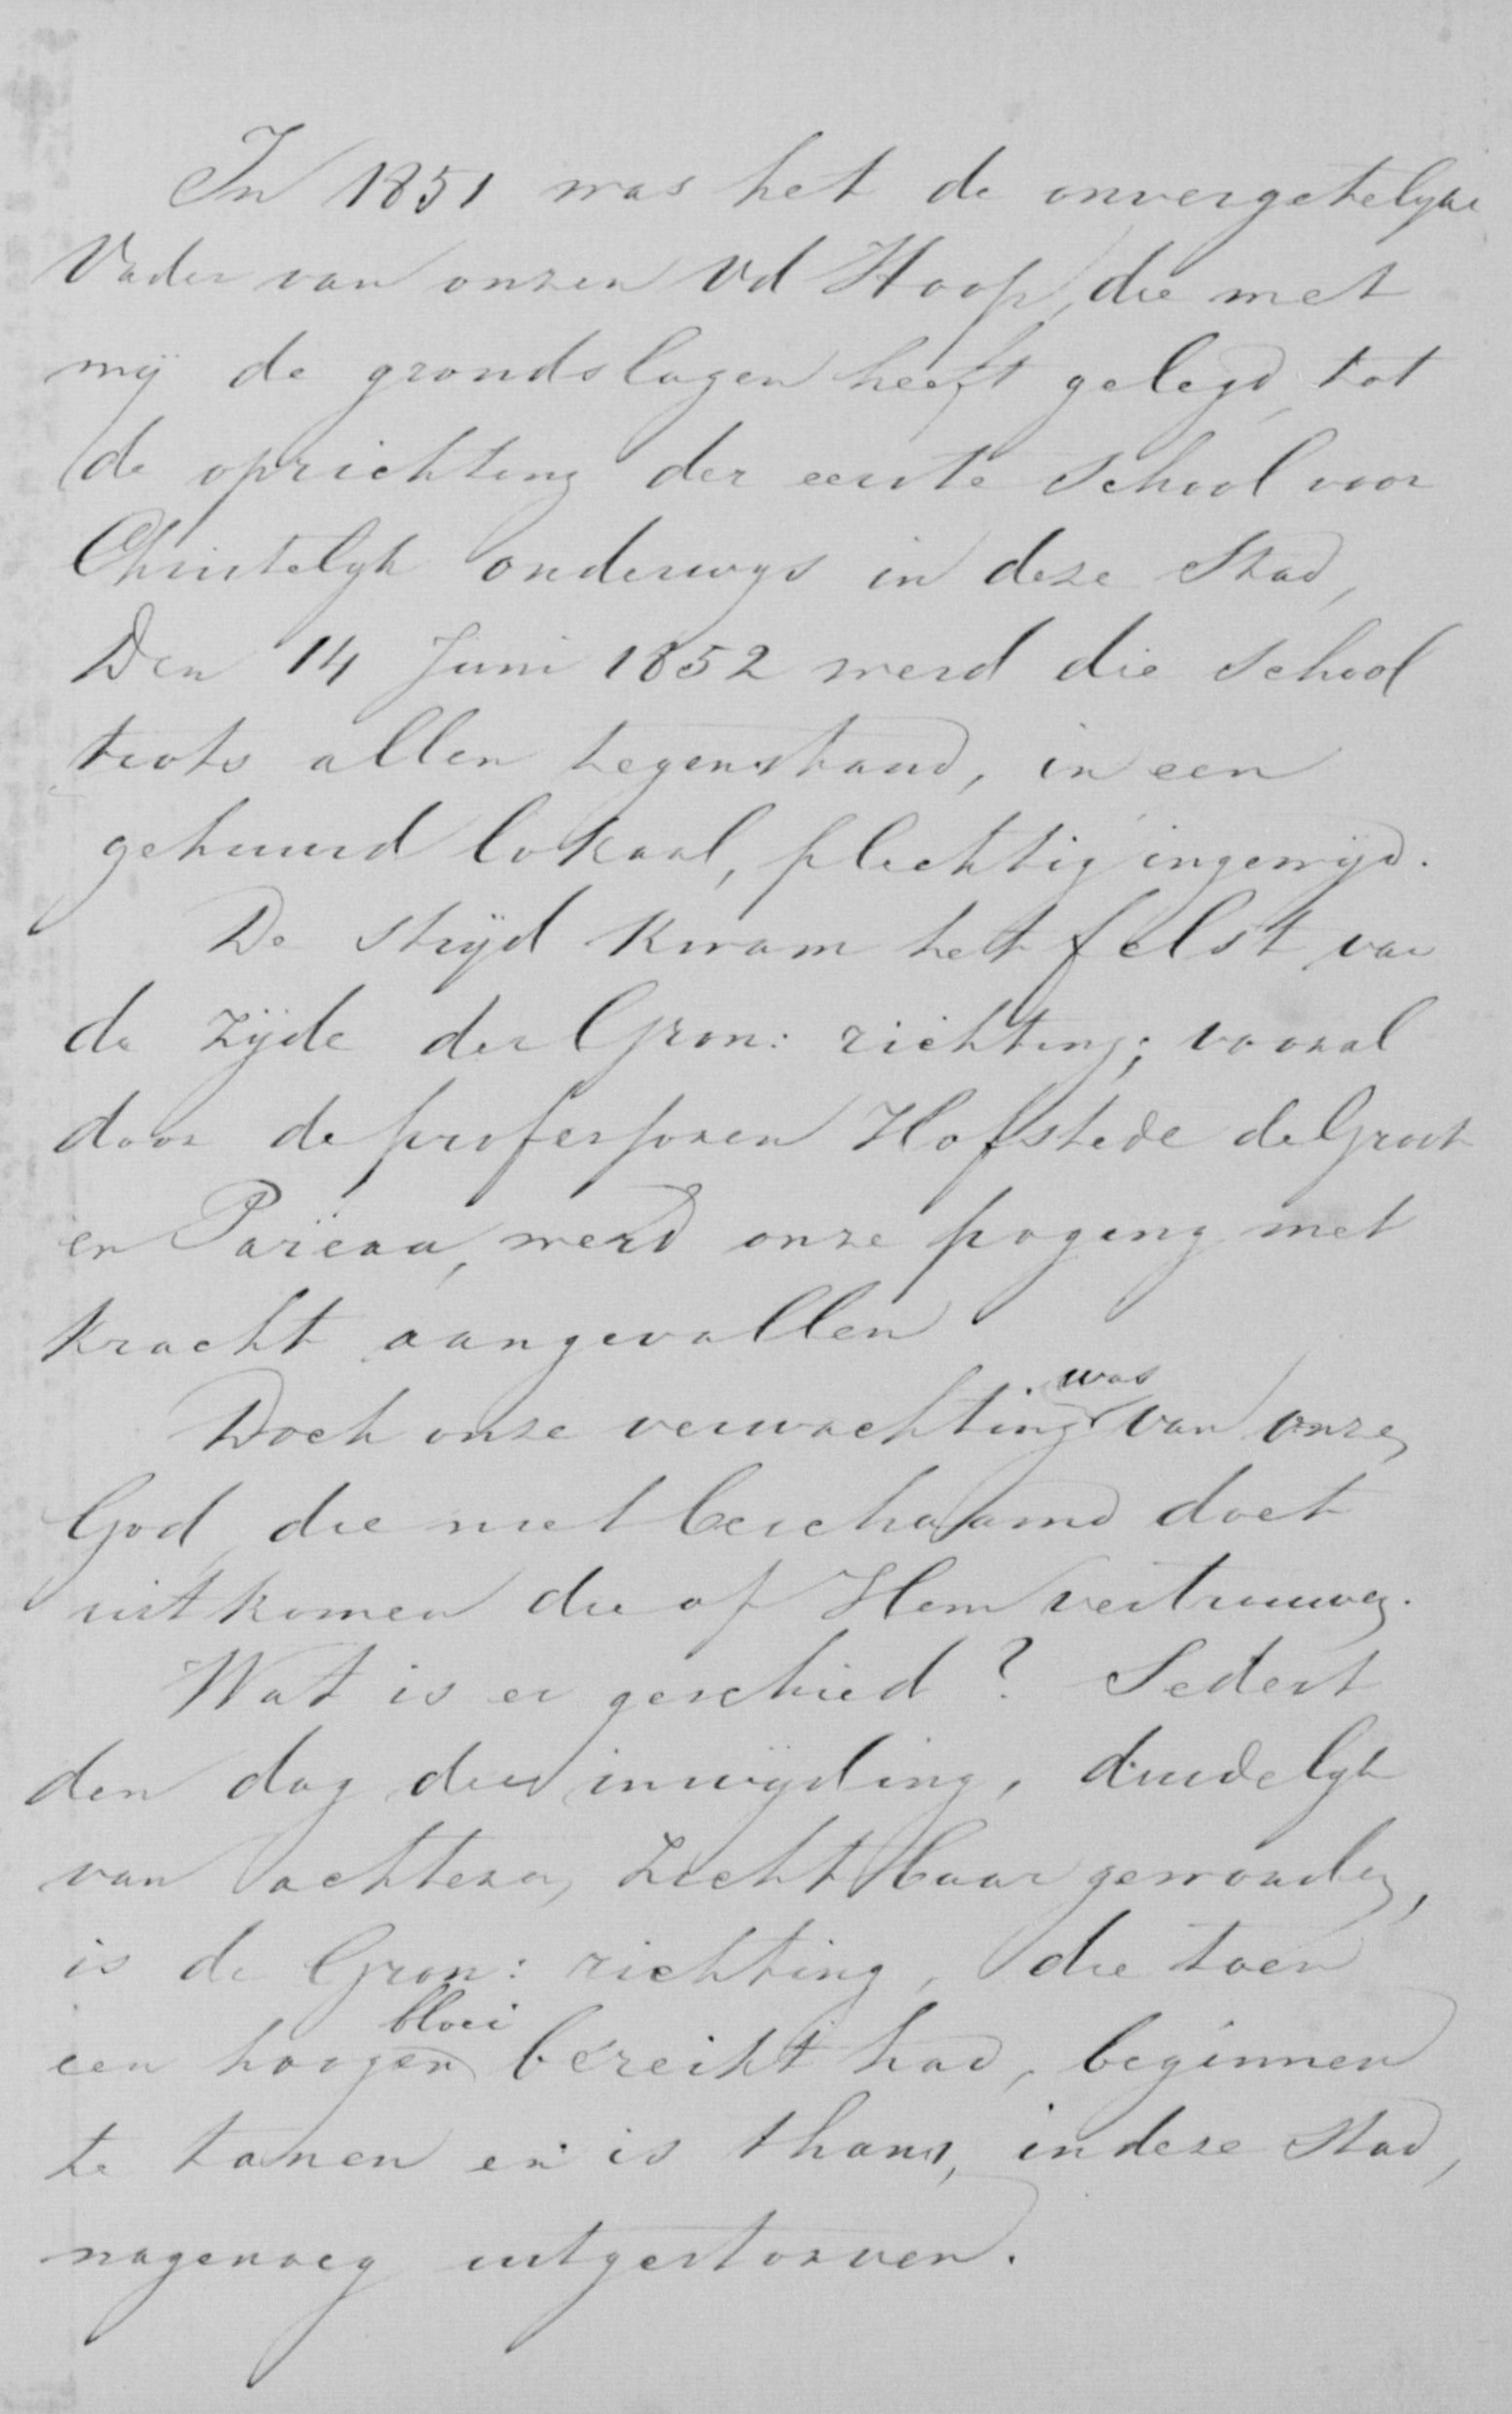 In 1851 was het de onvergetelyke
Vader van onzen Vd Hoop, die met
mij de grondslagen heeft gelegd, tot
de oprichting der eerste School voor
Christelyk onderwys in deze Stad,
Den 14 Juni 1852 werd die School
trots allen tegenstand, in een
gehuurd lokaal, plechtig ingewijd.
De strijd kwam het felst van
de zijde der Gron: richting; vooral
door de professoren Hofstede de Groot
en Paréau, werd onze poging met
kracht aangevallen
Doch onze verwachting was van onzen
God die niet beschaamd doet
uitkomen die op Hem vertrouwen.
Wat is er geschied? Sedert
den dag dier inwijding, duidelyk
van achteren, zichtbaar geworden,
is de Gron: richting, die toen
een hoogen bloei bereikt had, beginnen
te tanen en is thans, in deze Stad,
nagenoeg uitgestorven.